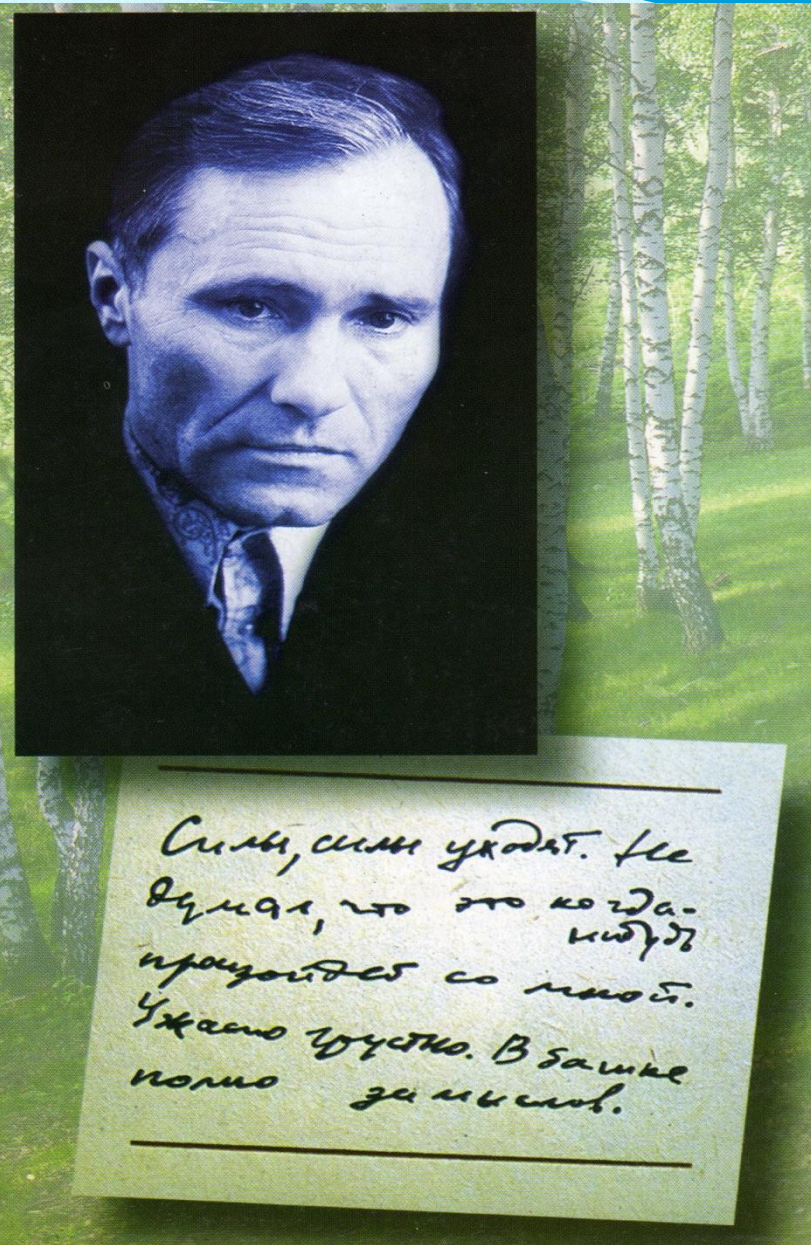 Силы, силы уходят. Не
думал, что это когда-
нибудь
произойдет со мной.
Ужасно грустно. В башке
полно замыслов.